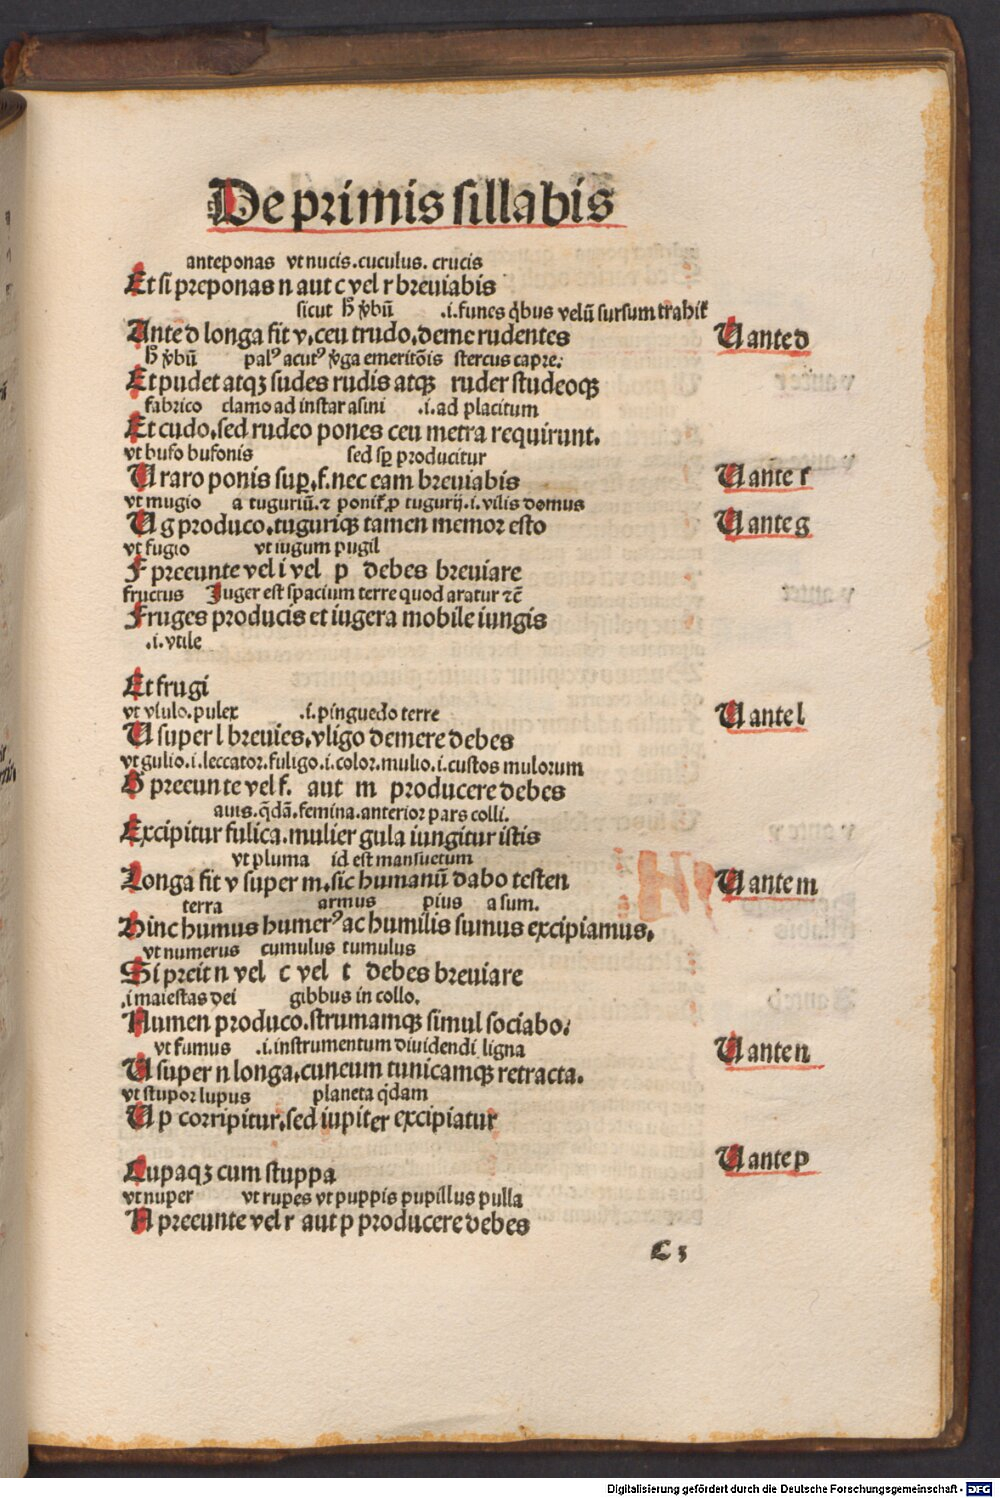 De primis sillabis
anteponas vt nucis. cuculus. crucis
Et si preponas n aut c vel r breuiabis
sicut hͦ v̓bū .i. funes q̇bus velū sursum trahit̃
Ante d longa fit v, ceu trudo, deme rudentes
V ante d
hͦ v̓bū palꝰ acutꝰ v̓ga emeritōis stercus capre:
Et pudet atqꝫ sudes rudis atqꝫ ruder studeoqꝫ
fabrico clamo ad instar asini .i. ad placitum
Et cudo, sed rudeo pones ceu metra requirunt.
vt bufo bufonis sed sꝑ producitur
V raro ponis suꝑ, f. nec eam breuiabis
V ante f
vt mugio a tuguriū. ⁊ ponit̃ ꝓ tugurij .i. vilis domus
V g produco, tuguriqꝫ tamen memor esto
V ante g
vt fugio vt iugum pugil
F preeunte vel i vel p debes breuiare
fructus Juger est spacium terre quod aratur ⁊c̄
Fruges producis et iugera mobile iungis
.i. vtile
Et frugi
vt vlulo. pulex .i. pinguedo terre
V ante l
V super l breuies, vligo demere debes
vt gulio .i. leccator. fuligo .i. color. mulio .i. custos mulorum
G preeunte vel f. aut m producere debes
auis. q̄dā. femina. anterior pars colli.
Excipitur fulica. mulier gula iungitur istis
vt pluma id est mansuetum
Longa fit v super m, sic humanū dabo testen
V ante m
terra armus pius a sum.
Hinc humus humerꝰ ac humilis sumus excipiamus,
vt numerus cumulus tumulus
Si preit n vel c vel t debes breuiare
.i maiestas dei gibbus in collo.
Numen produco. strumamqꝫ simul sociabo:
vt fumus .i. instrumentum diuidendi ligna
V ante n
V super n longa, cuneum tunicamqꝫ retracta.
vt stupor lupus planeta q̇dam
V p corripitur, sed iupiter excipiatur
V ante p
Lupaqꝫ cum stuppa
vt nuper vt rupes vt puppis pupillus pulla
N preeunte vel r aut p producere debes
C 3
Digitalisierung gefördert durch die Deutsche Forschungsgemeinschaft - DFG